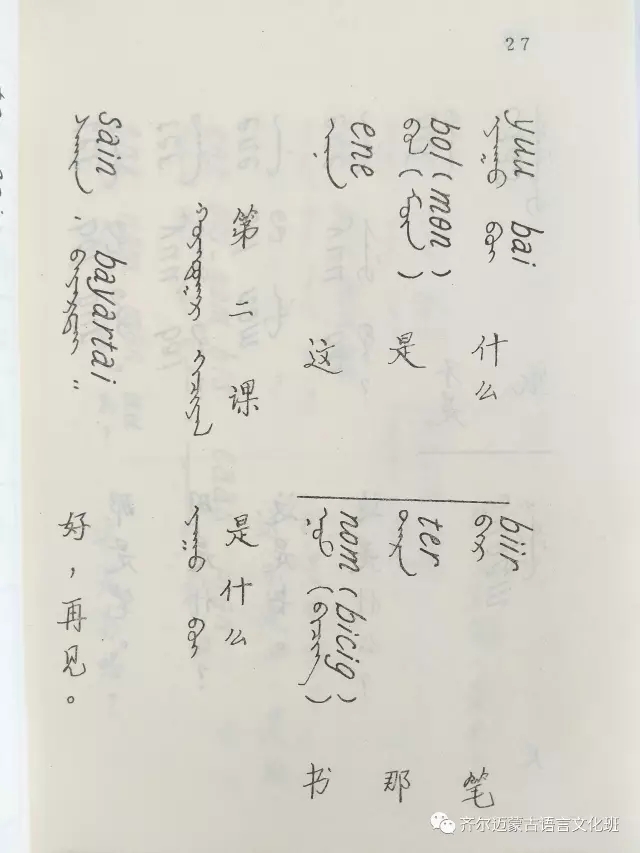 27
sain bayartai
ᠰᠠᠶᠢᠨ᠂ ᠪᠠᠶᠠᠷᠲᠠᠢ᠃
好，再见。
第二课 是什么
ᠬᠣᠶᠠᠳᠤᠭᠠᠷ ᠬᠢᠴᠢᠶᠡᠯ ᠶᠠᠭᠤ ᠪᠤᠢ
ene
ᠡᠨᠡ
这
bol (mon)
ᠪᠣᠯ (ᠮᠥᠨ)
是
yuu bai
ᠶᠠᠭᠤ ᠪᠤᠢ
什么
nom (bicig)
ᠨᠣᠮ (ᠪᠢᠴᠢᠭ)
书
ter
ᠲᠡᠷᠡ
那
biir
ᠪᠢᠷ
笔
齐尔迈蒙古语言文化班